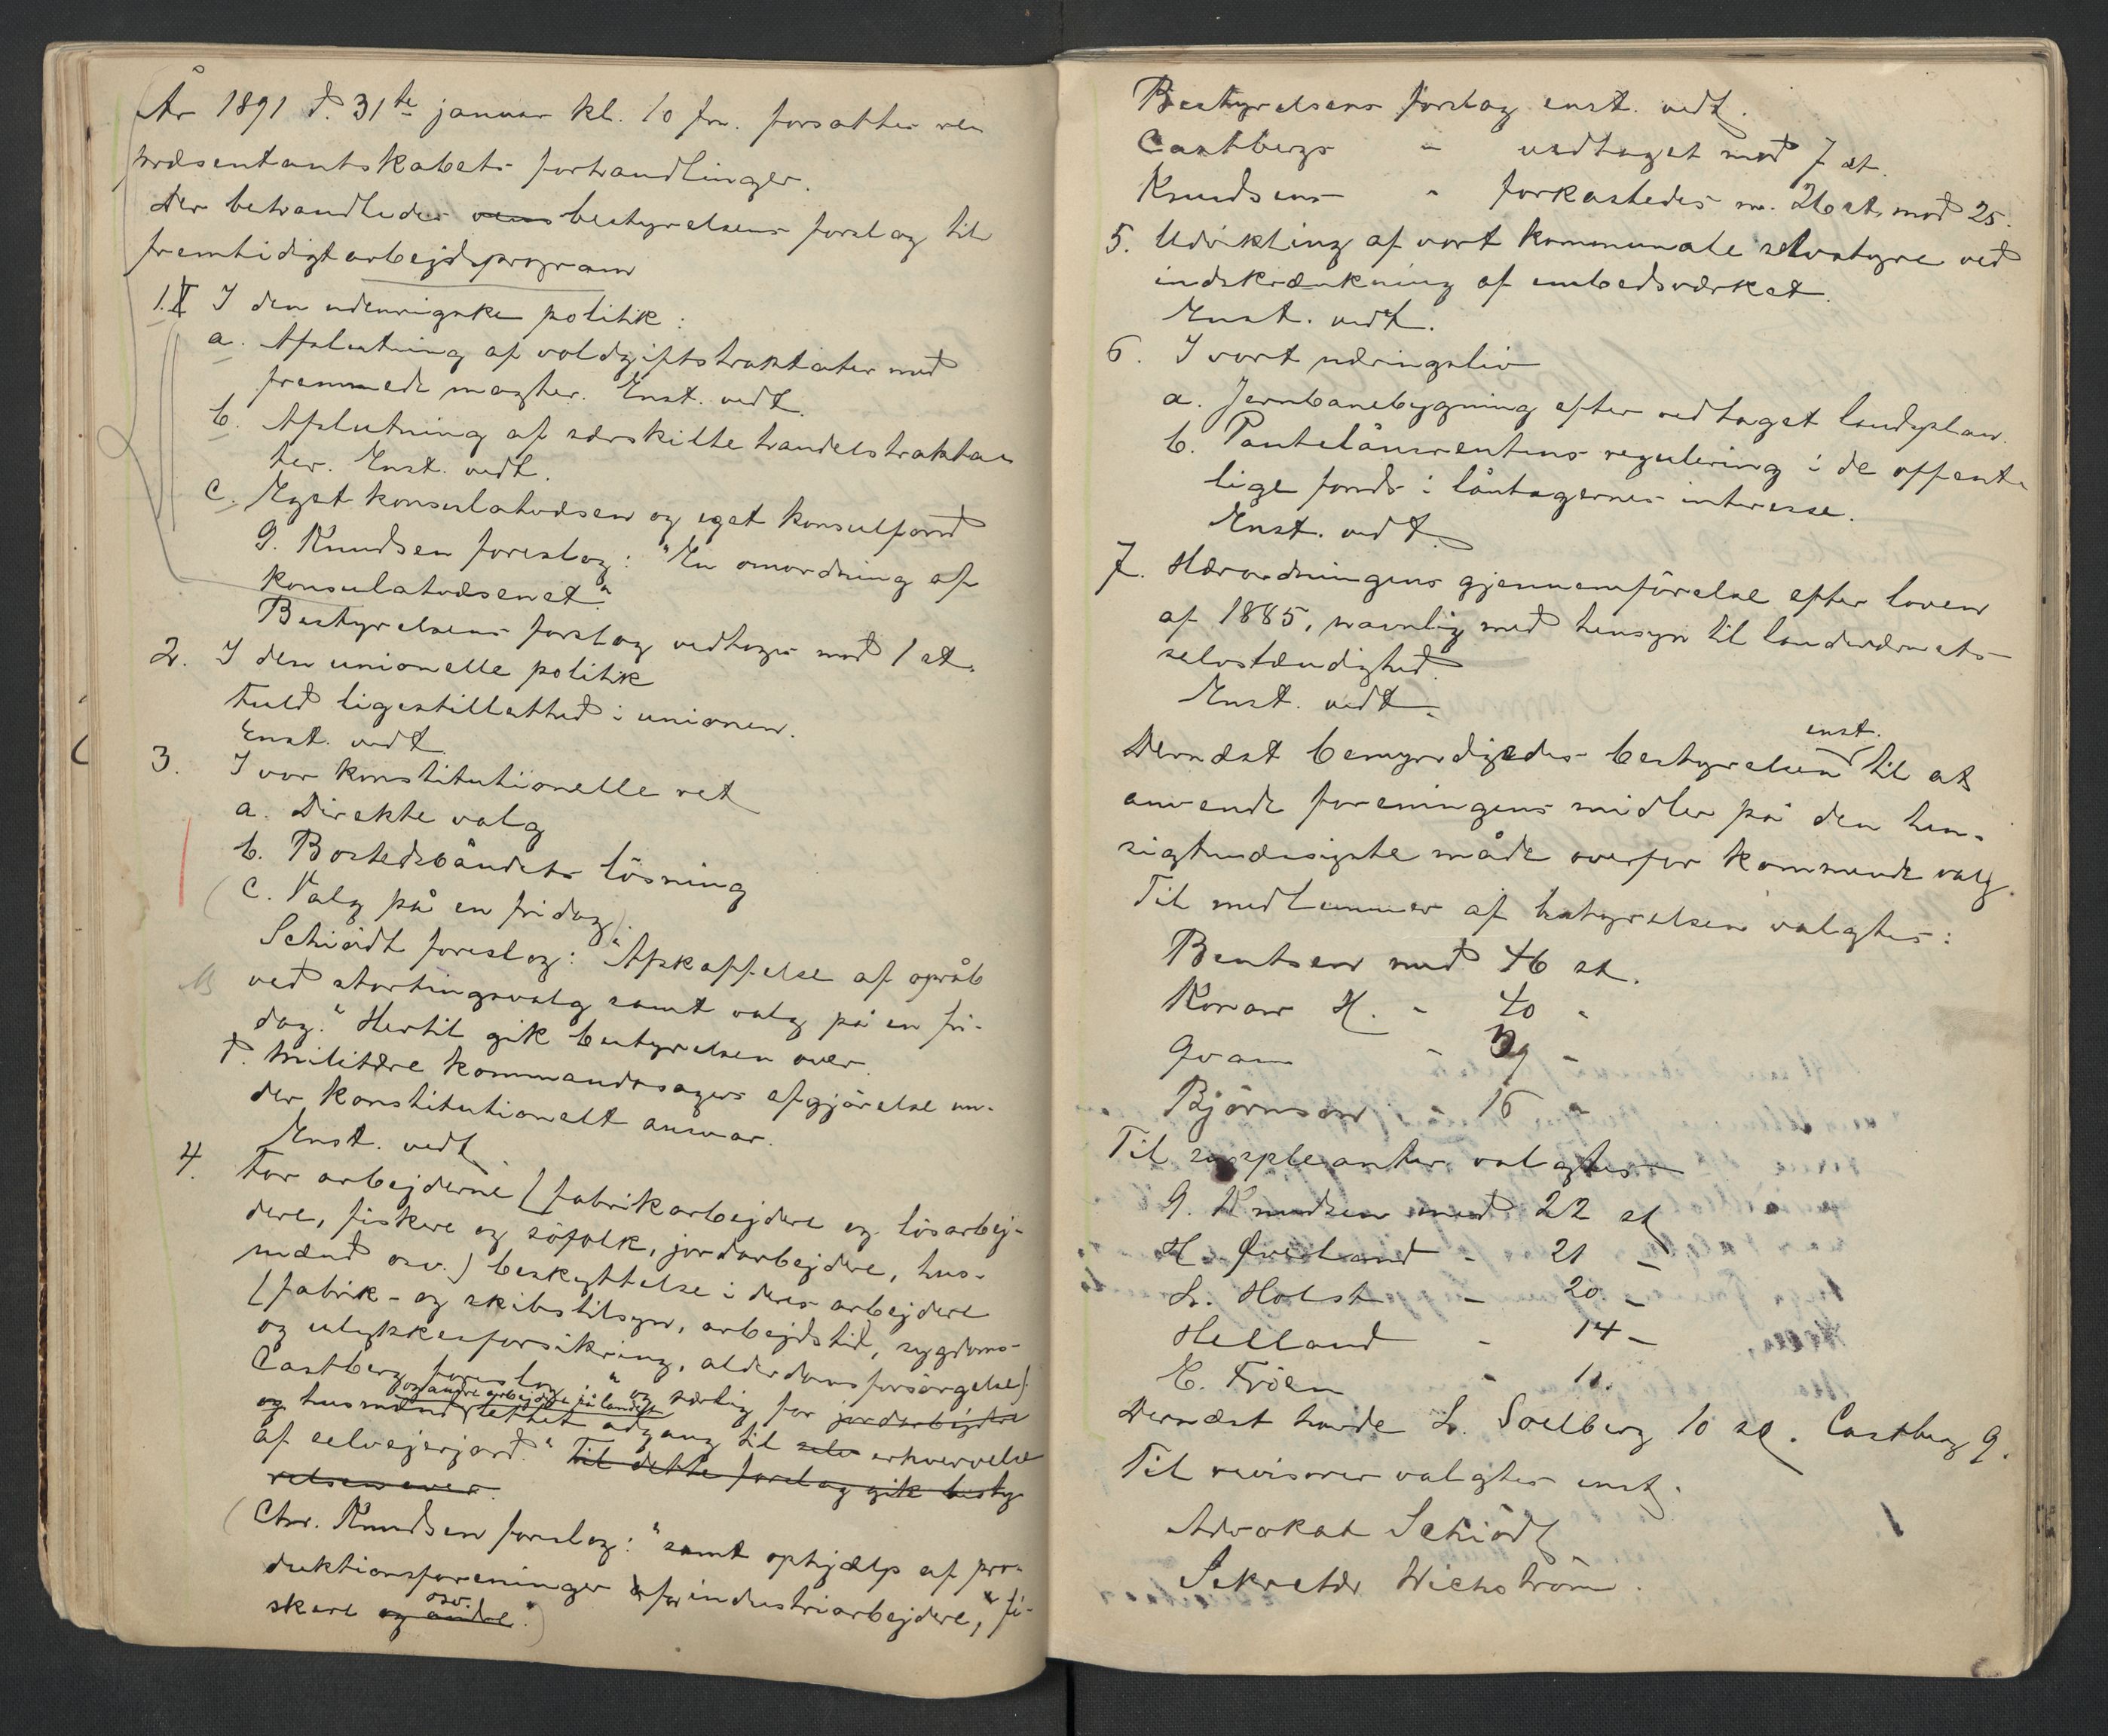 År 1891 d. 31te januar kl. 10 fm. forsattes re
præsentantskabets forhandlinger.
Der behandledes bestyrelsens forslag til
fremtidigt arbejdsprogram
1. I den udenrigske politik:
a. Afslutning af voldgiftstraktater med
fremmede magter. Enst. vedt.
b. Afslutning af særskilte handelstrakta
ter. Enst. vedt.
c. Eget konsulatvæsen og eget konsulfond
G. Knudsen foreslog: "En omordning af
konsulatvæsenet."
Bestyrelsens forslag vedtoges mod 1 st.
2. I den unionelle politik
Fuld ligestillethed i unionen.
Enst. vedt.
3. I vor konstitutionelle ret
a. Direkte valg
b. Bostedsbåndets løsning
(c. Valg på en fridag)
Schiödt foreslog: "Afskaffelse af opråb
ved stortingsvalg samt valg på en fri-
dag." Hertil gik bestyrelsen over.
d. Militære kommandosagers afgjörelse un-
der konstitutionelt ansvar.
Enst. vedt.
4. For arbejderne (fabrikarbejdere og lösarbej-
dere, fiskere og söfolk, jordarbejdere, hus-
mænd osv.) beskyttelse i deres arbejdere
(fabrik- og skibstilsyn, arbejdstid, sygdoms-
og ulykkesforsikring, alderdomsforsörgelse)
Castberg foreslog: "og særlig for jordarbejdere
og husmænd og andre arbejdere på landet lettet adgang til selv erhvervelse
af selvejerjord." Til dette forslag gik besty
relsen over.
(Chr. Knudsen forslog: "samt ophjælp af pro-
duktionsforeninger for industriarbejdere, fi-
skere og andre osv.")
Bestyrelsens forslag enst. vedt.
Castbergs " vedtaget mod 7 st.
Knudsens " forkastedes m. 26 st. mod 25.
5. Udvikling af vort kommunale selvstyre ved
indskrænkning af embedsværket.
Enst. vedt.
6. I vort næringsliv
a. Jernbanebygning efter vedtaget landsplan.
b. Pantelånsrentens regulering i de offent-
lige fonds i låntagernes interesse.
Enst. vedt.
7. Hærordningens gjennemförelse efter loven
af 1885, navnlig med hensyn til landeværnets
selvstændighed.
Enst. vedt.
Dernæst bemyndigedes bestyrelsen enst. til at
anvende foreningens midler på den hen-
sigtmæssigste måde overfor kommende valg.
Til medlemmer af bestyrelsen valgtes:
Bentsen med 46 st.
Konow H. - 40 -
Qvam - 39 -
Björnson - 16 -
Til suppleanter valgtes
G. Knudsen med 22 st
H. Øverland - 21 -
L. Holst - 20 -
Helland - 14 -
E. Fröen - 11.
Dernæst havde L. Soelberg 10 st. Castberg 9.
Til revisorer valgtes enst.
Advokat Schiödt
Sekretær Wichström.